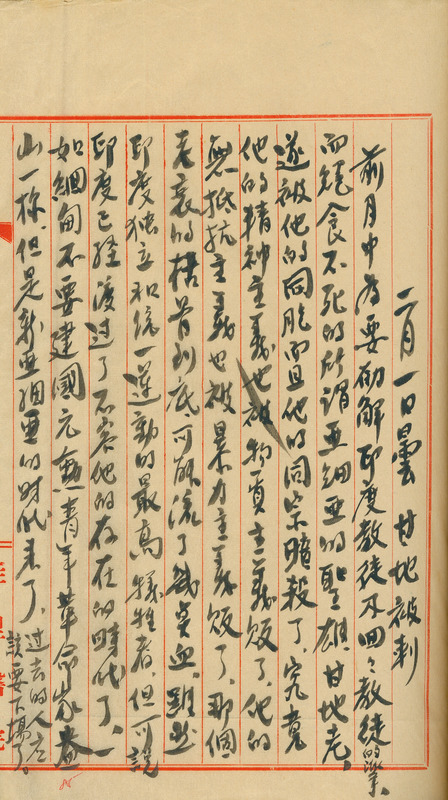 二月一日曇 甘地被刺
前月中為要勸解印度教徒及回々教徒的架、
而絕食不死的所謂亞細亞的聖雄、甘地老、
遂被他的同胞而且他的同宗暗殺了、究竟
他的精神主義也被物質主義敗了、他的
無抵抗主義也被暴力主義敗了、那個
老衰的枯骨到底可能流了幾多血、雖然
印度独立和統一運動的最高犧牲者、但可說
印度已經渡过了不容他的存在的時代了、一
如緬甸不要建國元勳青年革命家
山一樣、但是新亞細亞的時代来了、过去的人应
該要下場了。